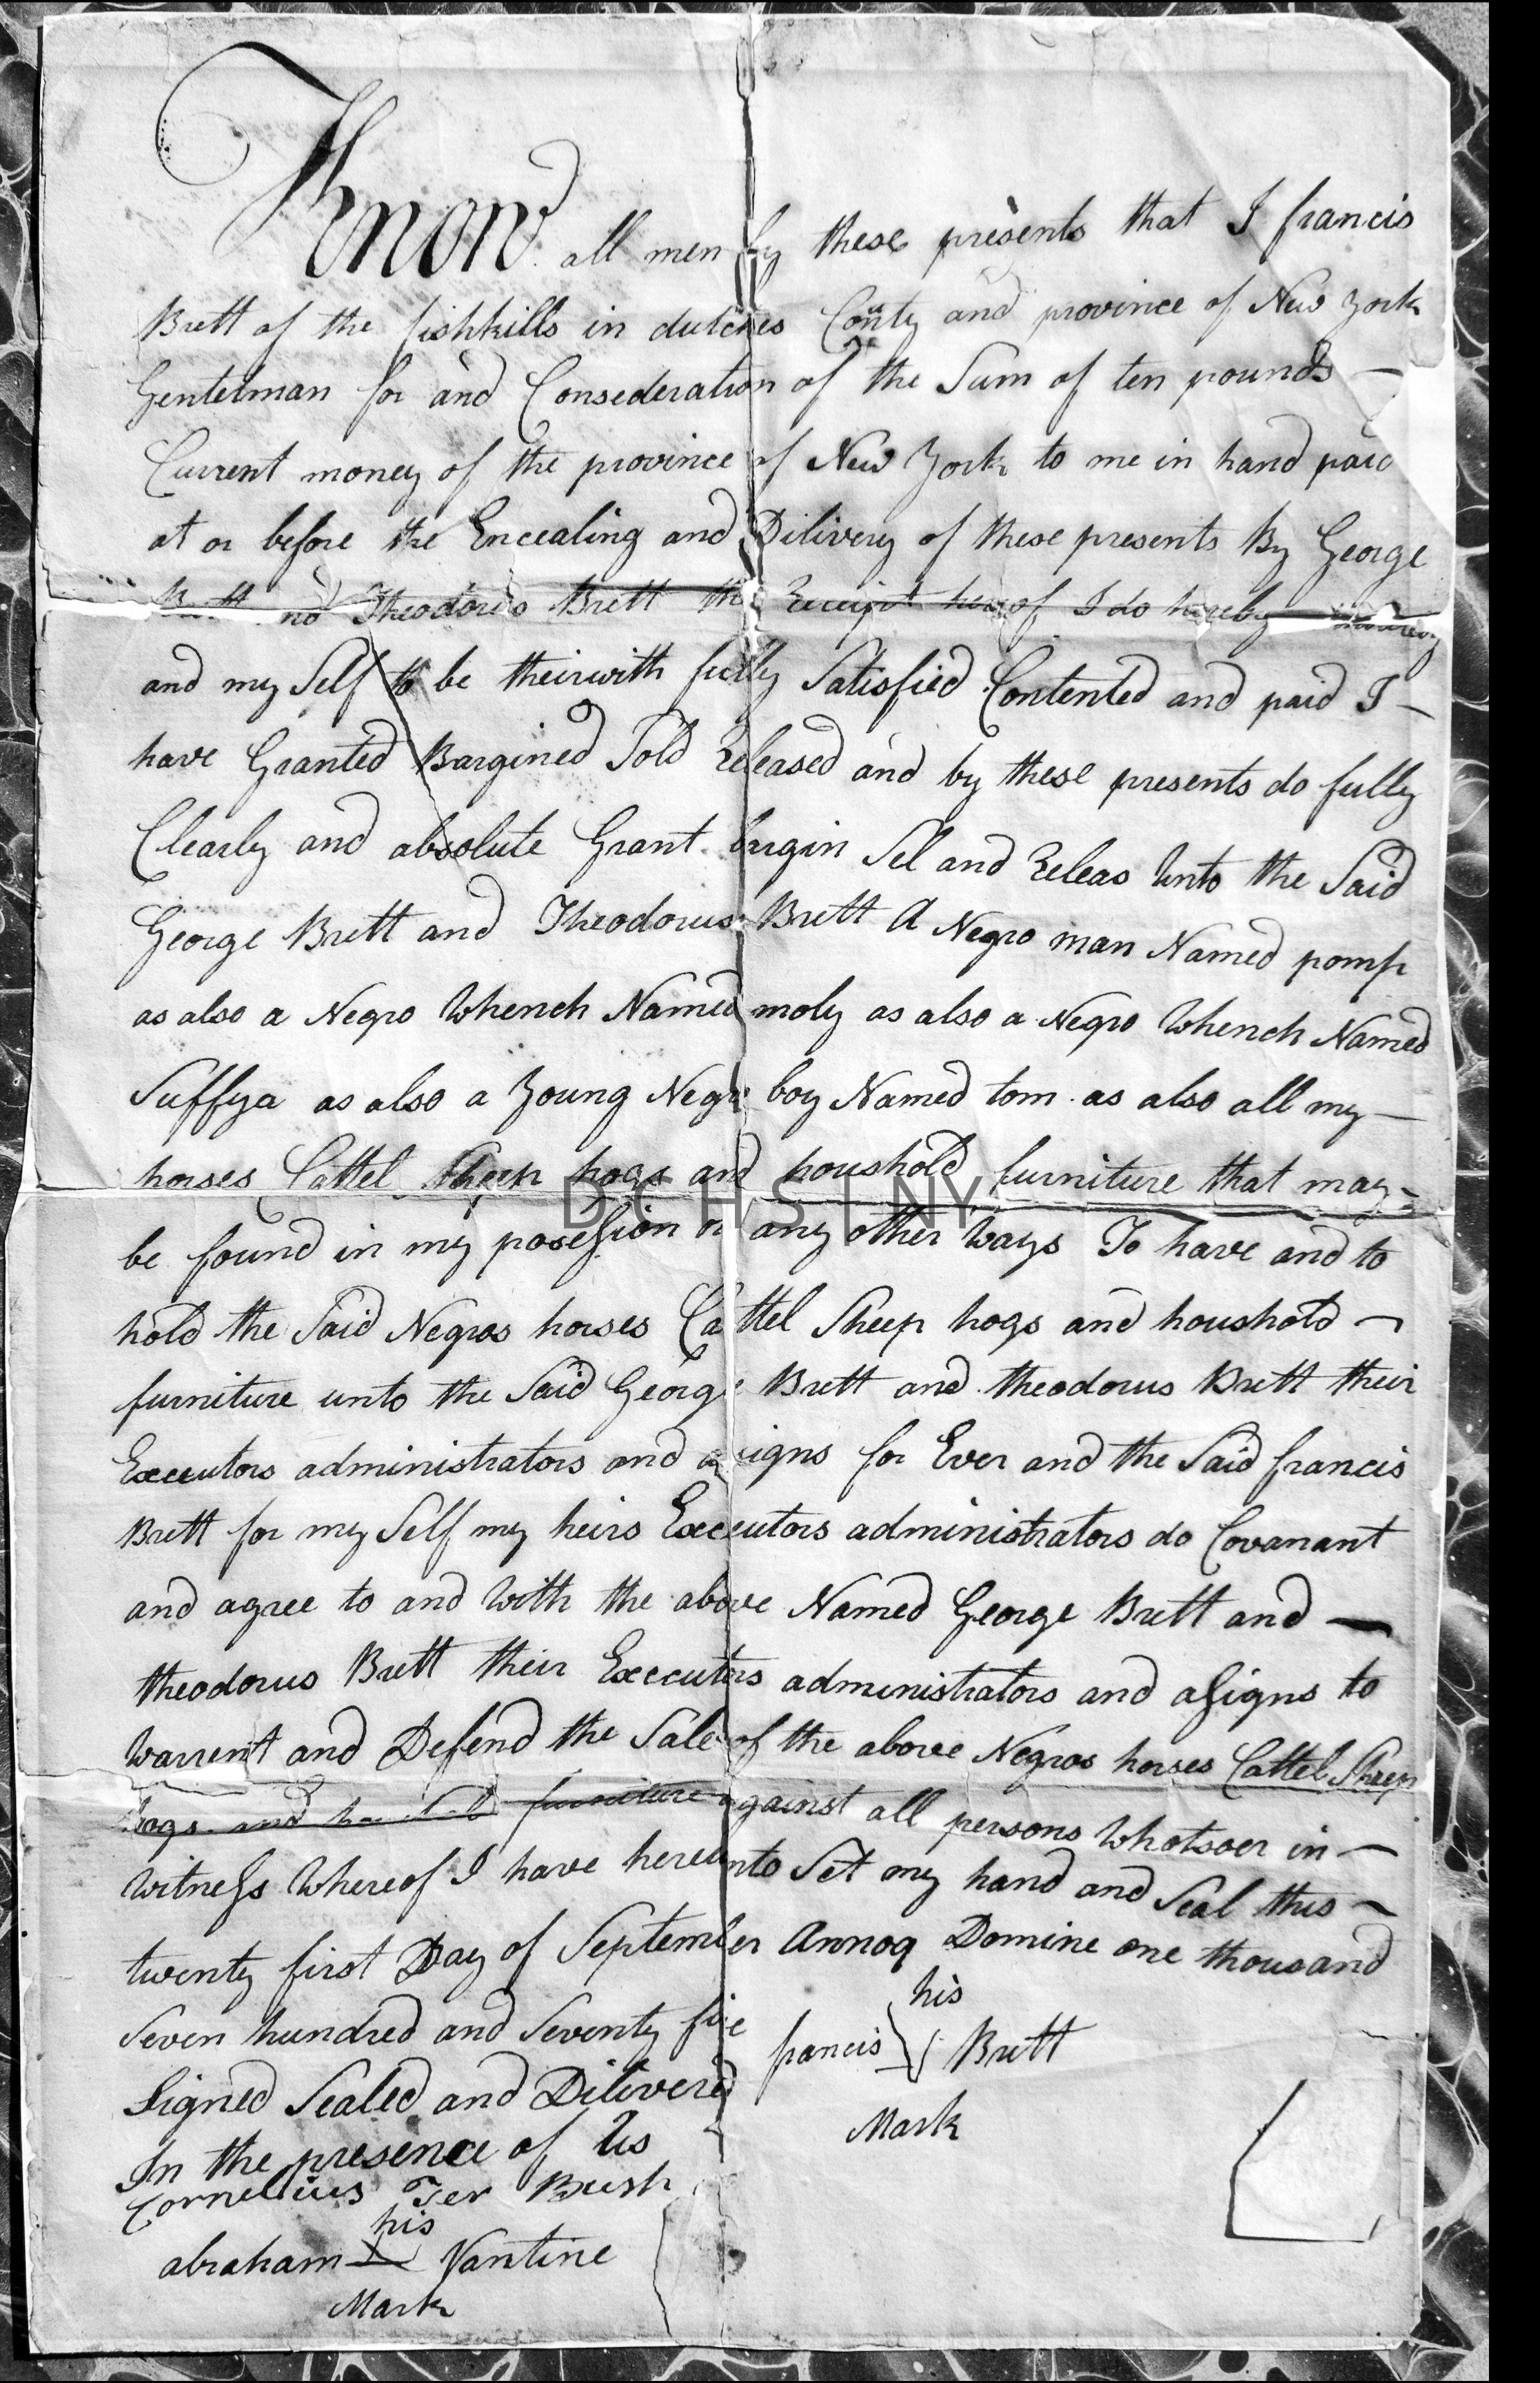 Know all men by these presents that I francis
Brett of the fishkills in dutches Conty and province of New York
Gentelman for and Consederation of the Sum of ten pounds
Current money of the province of New York to me in hand paid
at or before the Encealing and Dilivery of these presents By George
Brett and Theodorus Brett the Receipt hereof I do hereby
and my Self to be theirwith fully Satisfied Contented and paid I
have Granted Bargined Sold Released and by these presents do fully
Clearly and absolute Grant bargin Sel and Releas Unto the Said
George Brett and Theodorus Brett A Negro man Named pomp
as also a Negro Whench Named moly as also a Negro Whench Named
Suffya as also a Young Negro boy Named tom as also all my
horses Cattel Sheep hogs and houshold furniture that may
be found in my posession or any other Ways To have and to
hold the Said Negros horses Cattel Sheep hogs and houshold
furniture unto the Said George Brett and theodorus Brett their
Executors administrators and asigns for Ever and the Said francis
Brett for my Self my heirs Executors administrators do Covanant
and agree to and With the above Named George Brett and
theodorus Brett their Executors administrators and assigns to
Warrent and Defend the Sale of the above Negros horses Cattel Sheep
hogs and furniture against all persons Whatsoer in
Witness Whereof I have hereunto Set my hand and Seal this
twenty first Day of September Annoq Domine one thousand
Seven hundred and Seventy five
his
francis Brett
Mark
Signed Sealed and Dilivered
In the presence of Us
Cornelius Ter Bush
his
abraham Vantine
Mark
DCHS | NY